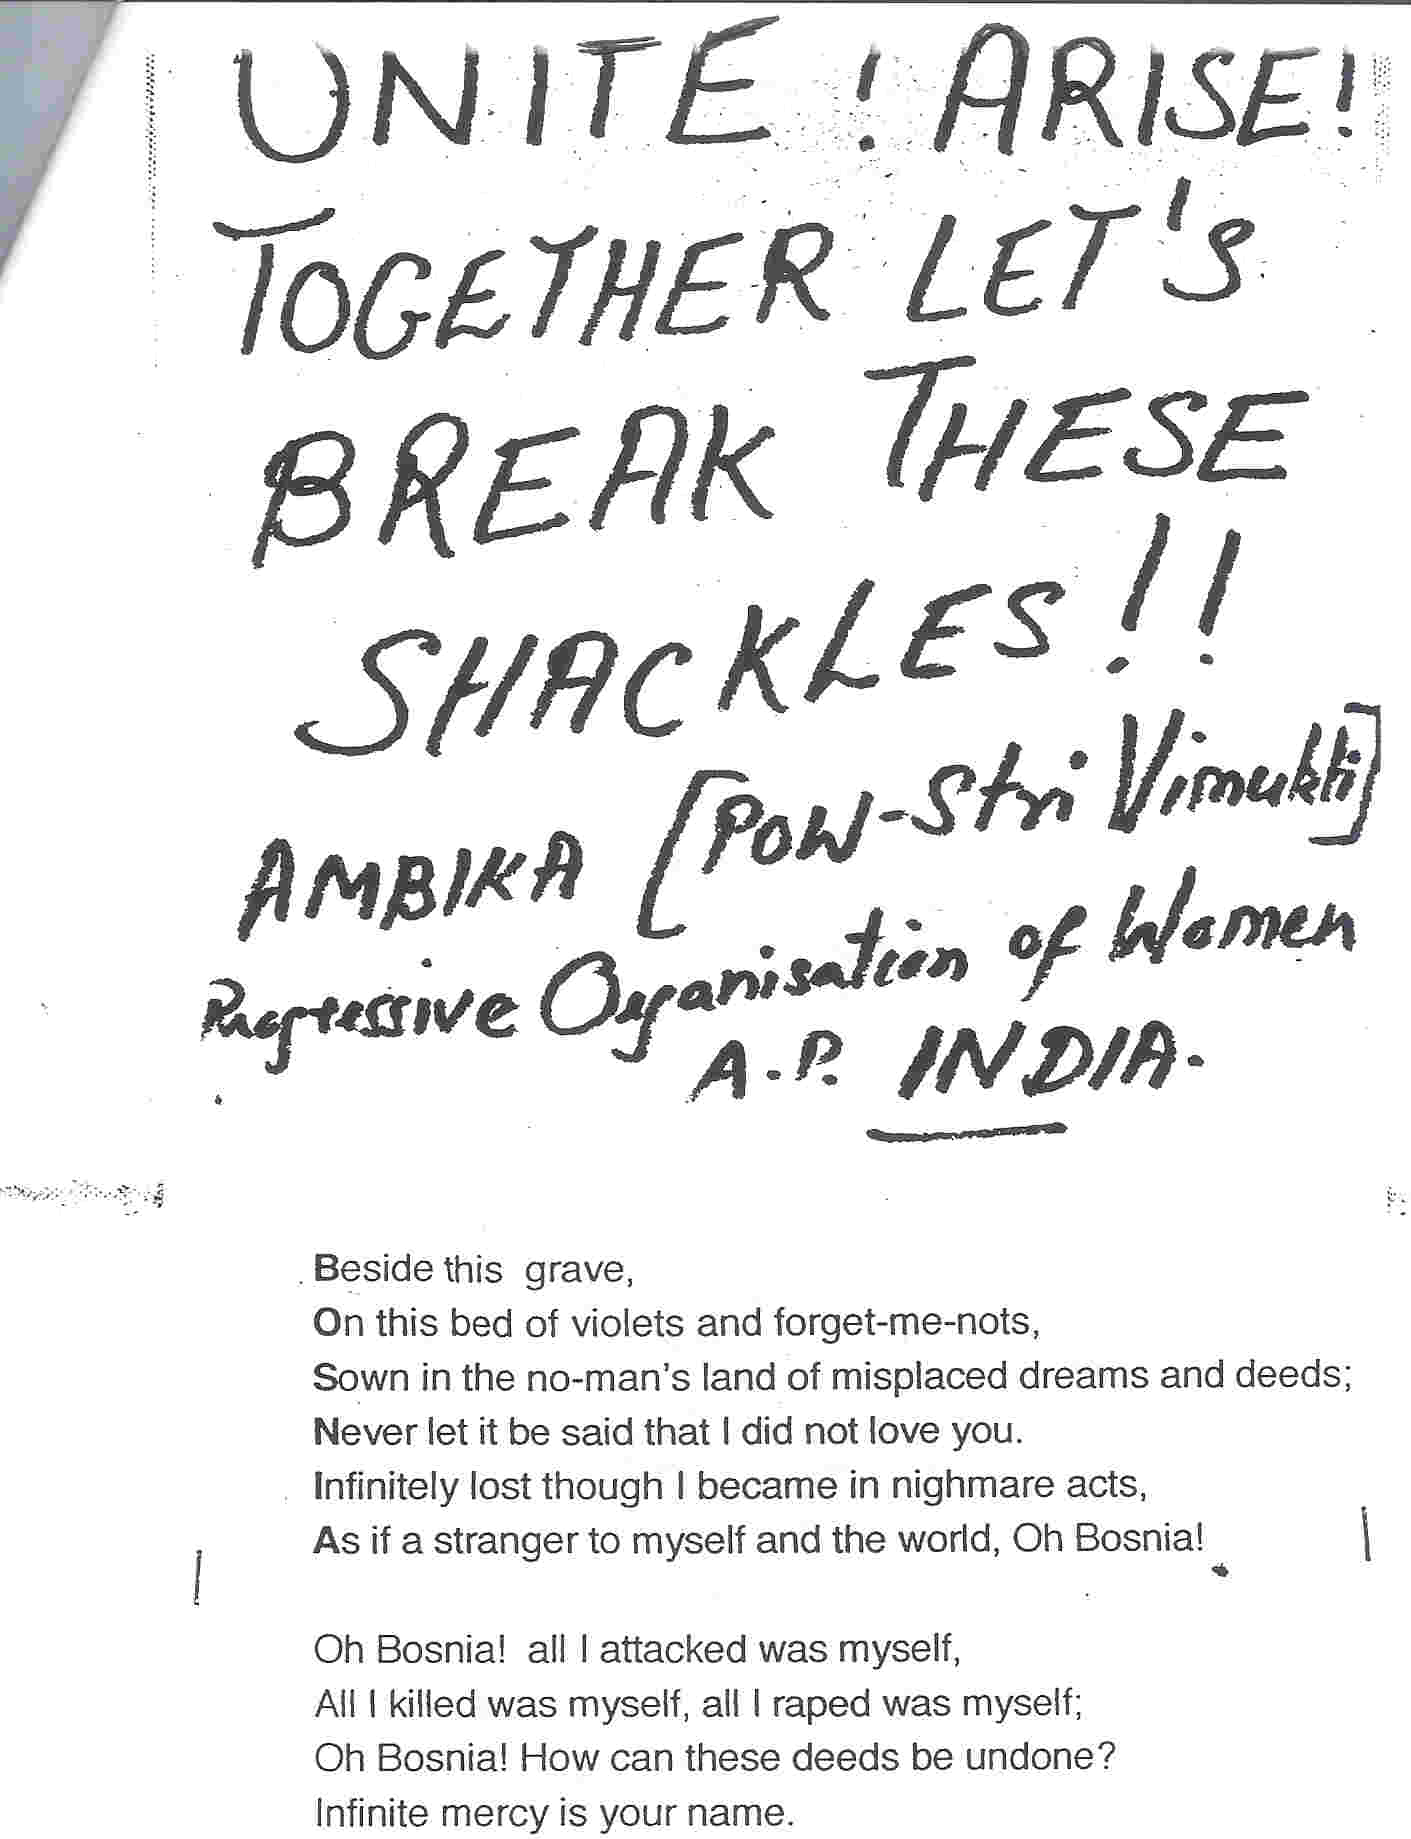 UNITE ! ARISE!
TOGETHER LET'S
BREAK THESE
SHACKLES!!
AMBIKA [POW-Stri Vimukti]
Progressive Organisation of Women
A.P. INDIA.
Beside this grave,
On this bed of violets and forget-me-nots,
Sown in the no-man's land of misplaced dreams and deeds;
Never let it be said that I did not love you.
Infinitely lost though I became in nighmare acts,
As if a stranger to myself and the world, Oh Bosnia!
Oh Bosnia! all I attacked was myself,
All I killed was myself, all I raped was myself;
Oh Bosnia! How can these deeds be undone?
Infinite mercy is your name.